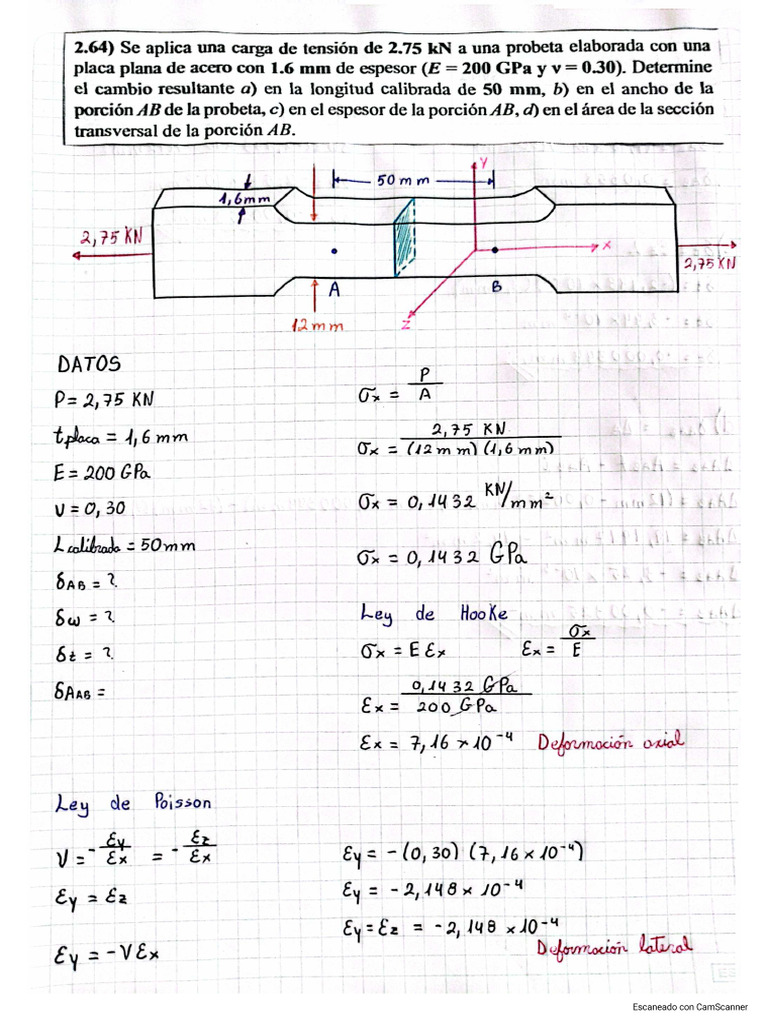 2.64) Se aplica una carga de tensión de 2.75 kN a una probeta elaborada con una
placa plana de acero con 1.6 mm de espesor (E = 200 GPa y ν = 0.30). Determine
el cambio resultante a) en la longitud calibrada de 50 mm, b) en el ancho de la
porción AB de la probeta, c) en el espesor de la porción AB, d) en el área de la sección
transversal de la porción AB.
50 mm
y
1,6mm
2,75 KN
x
2,75 KN
A
B
z
12mm
DATOS
P = 2,75 KN
tplaca = 1,6 mm
E = 200 GPa
V = 0,30
Lcalibrada = 50mm
δAB = ?
δw = ?
δt = ?
δAAB =
σx = P / A
σx = 2,75 KN / (12 mm) (1,6 mm)
σx = 0,1432 KN/mm²
σx = 0,1432 GPa
Ley de Hooke
σx = E Ɛx Ɛx = σx / E
Ɛx = 0,1432 GPa / 200 GPa
Ɛx = 7,16 × 10⁻⁴ Deformación axial
Ley de Poisson
V = - Ɛy / Ɛx = - Ɛz / Ɛx
Ɛy = Ɛz
Ɛy = - V Ɛx
Ɛy = - (0,30) (7,16 × 10⁻⁴)
Ɛy = - 2,148 × 10⁻⁴
Ɛy = Ɛz = - 2,148 × 10⁻⁴
Deformación lateral
Escaneado con CamScanner